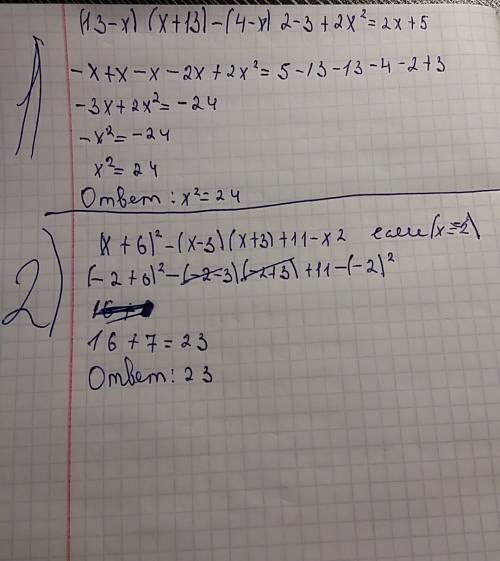 1)
(13-x) (x+13)-(4-x) 2-3+2x²=2x+5
-x+x-x-2x+2x²=5-13-13-4-2+3
-3x+2x²=-24
-x²=-24
x²=24
Ответ: x²=24
2)
(x+6)²-(x-3)(x+3)+11-x2 если (x=-2)
(-2+6)²-(-2-3)(-2+3)+11-(-2)²
16+7=23
Ответ: 23